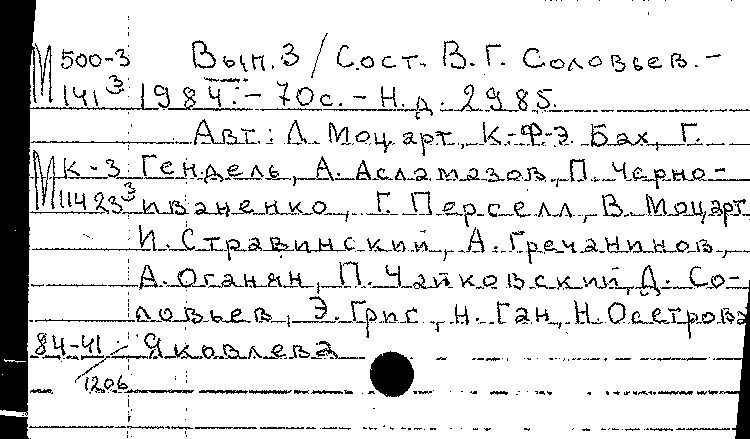 М 500-3 Вып. 3 / Сост. В. Г. Соловьев. –
141³ 1984. – 70с. – Н. д. 2985.
Авт: Л. Моцарт, К.-Ф-Э. Бах, Г.
М К-3 Гендель, А. Асламазов, П. Черно-
11423³ иваненко, Г. Перселл, В. Моцарт
И. Стравинский, А. Гречанинов,
А. Оганян, П. Чайковский, Д. Со-
ловьев, Э. Григ, Н. Ган, Н. Осетрова
84-41/1206 Яковлева